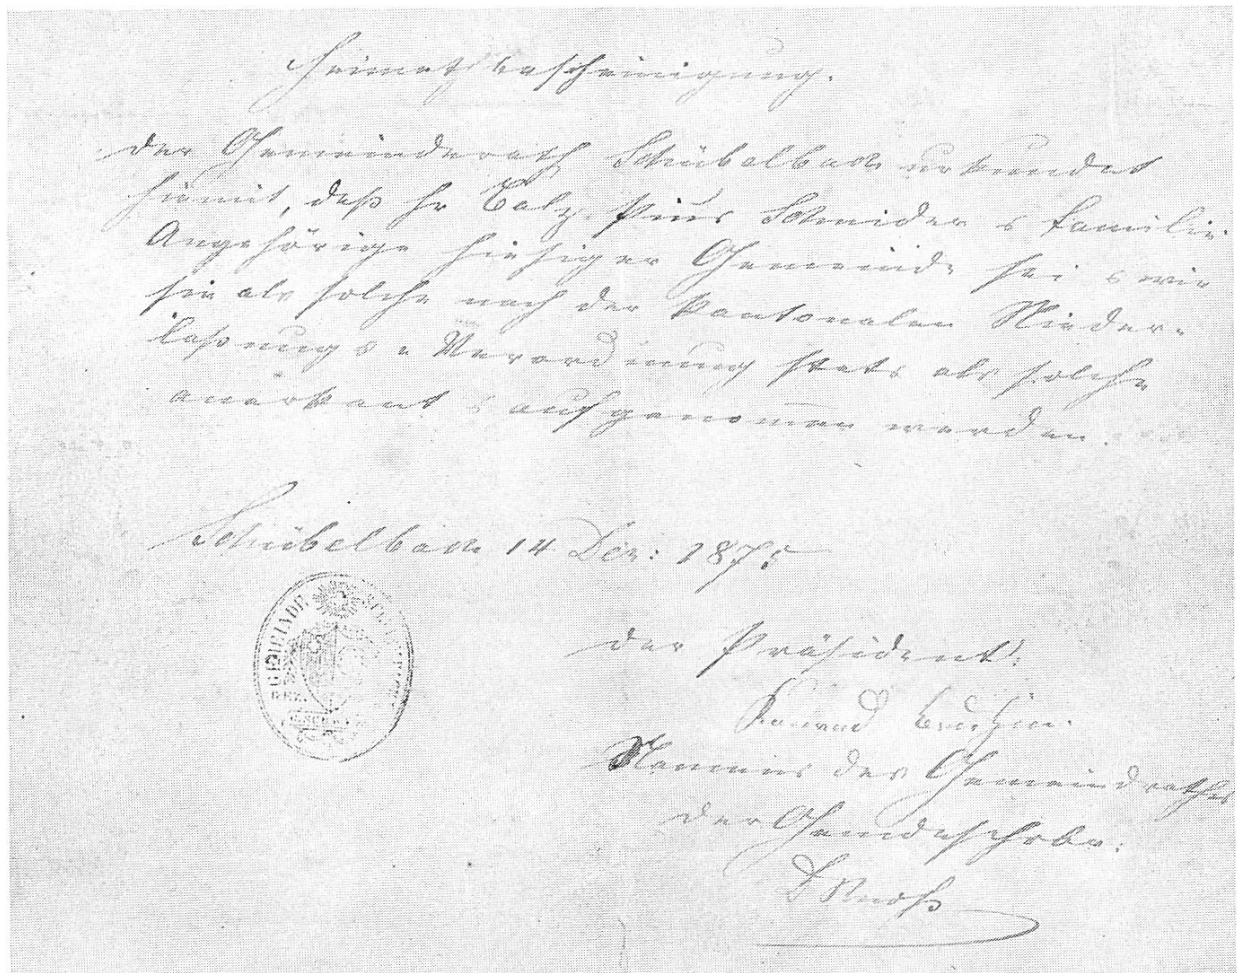 Heimathsbescheinigung.
Der Gemeinderath Schübelbach urkundet
hiemit, daß Hr Balz. Pius Schnider & Familie
Angehörige hiesiger Gemeinde sei & wir
sie als solche nach der kantonalen Nieder-
laßungs-Verordnung stets als solche
anerkant & aufgenomen werden.
Schübelbach 14 Dez: 1875
GEMEINDE
BEZ.
Der Präsident:
Konrad
Namens des Gemeindrathes
Der Gemdeschrbr: